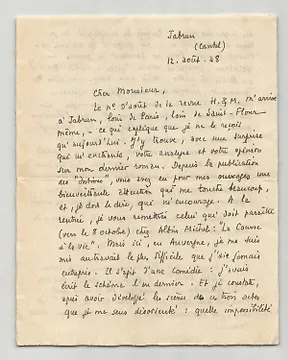 Jabrun
(Cantal)
12 août 48
Cher Monsieur,
Le n° d'août de la revue H. & M. m'arrive
à Jabrun, loin de Paris, loin de Saint-Flour
même, - ce qui explique que je ne le reçois
qu'aujourd'hui. J'y trouve, avec une surprise
qui m'enchante, votre analyse et votre opinion
sur mon dernier roman. Depuis la publication
des "Intime", vous avez eu pour mes ouvrages une
bienveillante attention qui me touche beaucoup,
et, je dois le dire, qui m'encourage. A la
rentrée, je vous remettrai celui qui doit paraître
(vers le 8 octobre) chez Albin Michel : "La Course
à la vie". Mais ici, en Auvergne, je me suis
mis au travail le plus difficile que j'aie jamais
entrepris. Il s'agit d'une Comédie : j'avais
écrit le schéma l'an dernier. Et je constate,
après avoir développé les scènes de ces trois actes
que je me sens désorienté : quelle impossibilité